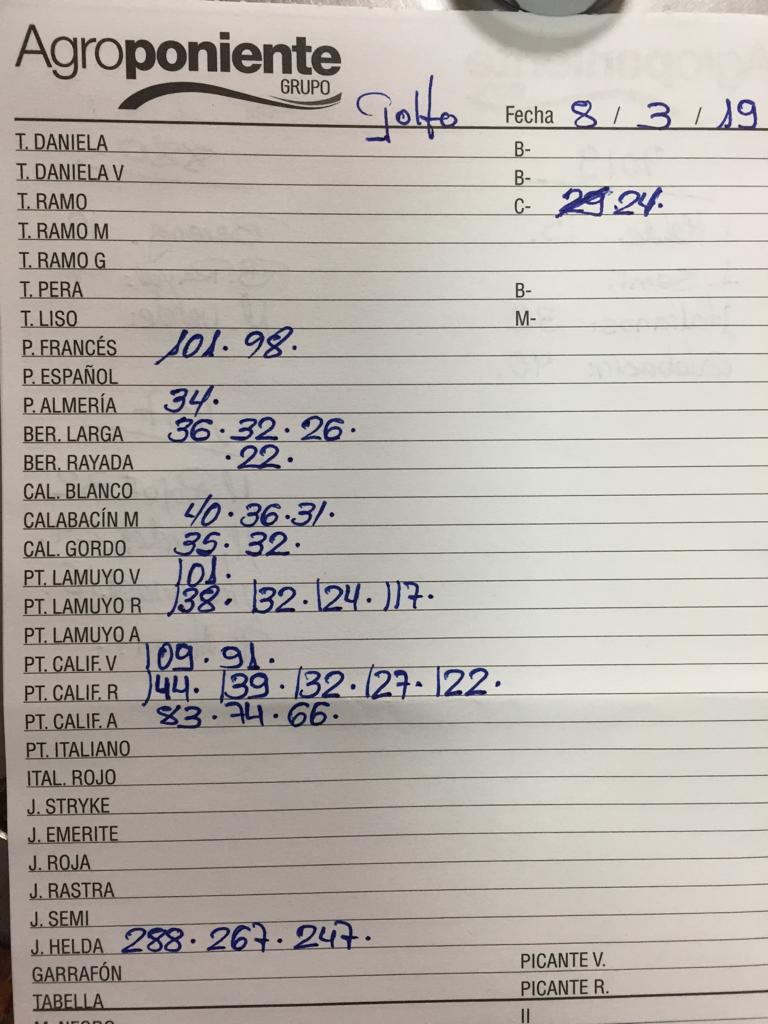 Agroponiente
GRUPO
Golfo Fecha 8 / 3 / 19
T. DANIELA B-
T. DANIELA V B-
T. RAMO C- 24.
T. RAMO M
T. RAMO G
T. PERA B-
T. LISO M-
P. FRANCÉS 101. 98.
P. ESPAÑOL
P. ALMERÍA 34.
BER. LARGA 36. 32. 26.
BER. RAYADA .22.
CAL. BLANCO
CALABACÍN M 40. 36. 31.
CAL. GORDO 35. 32.
PT. LAMUYO V 101.
PT. LAMUYO R 138. 132. 124. 117.
PT. LAMUYO A
PT. CALIF. V 109. 91.
PT. CALIF. R 144. 139. 132. 127. 122.
PT. CALIF. A 83. 74. 66.
PT. ITALIANO
ITAL. ROJO
J. STRYKE
J. EMERITE
J. ROJA
J. RASTRA
J. SEMI
J. HELDA 288. 267. 247.
GARRAFÓN PICANTE V.
TABELLA PICANTE R.
II